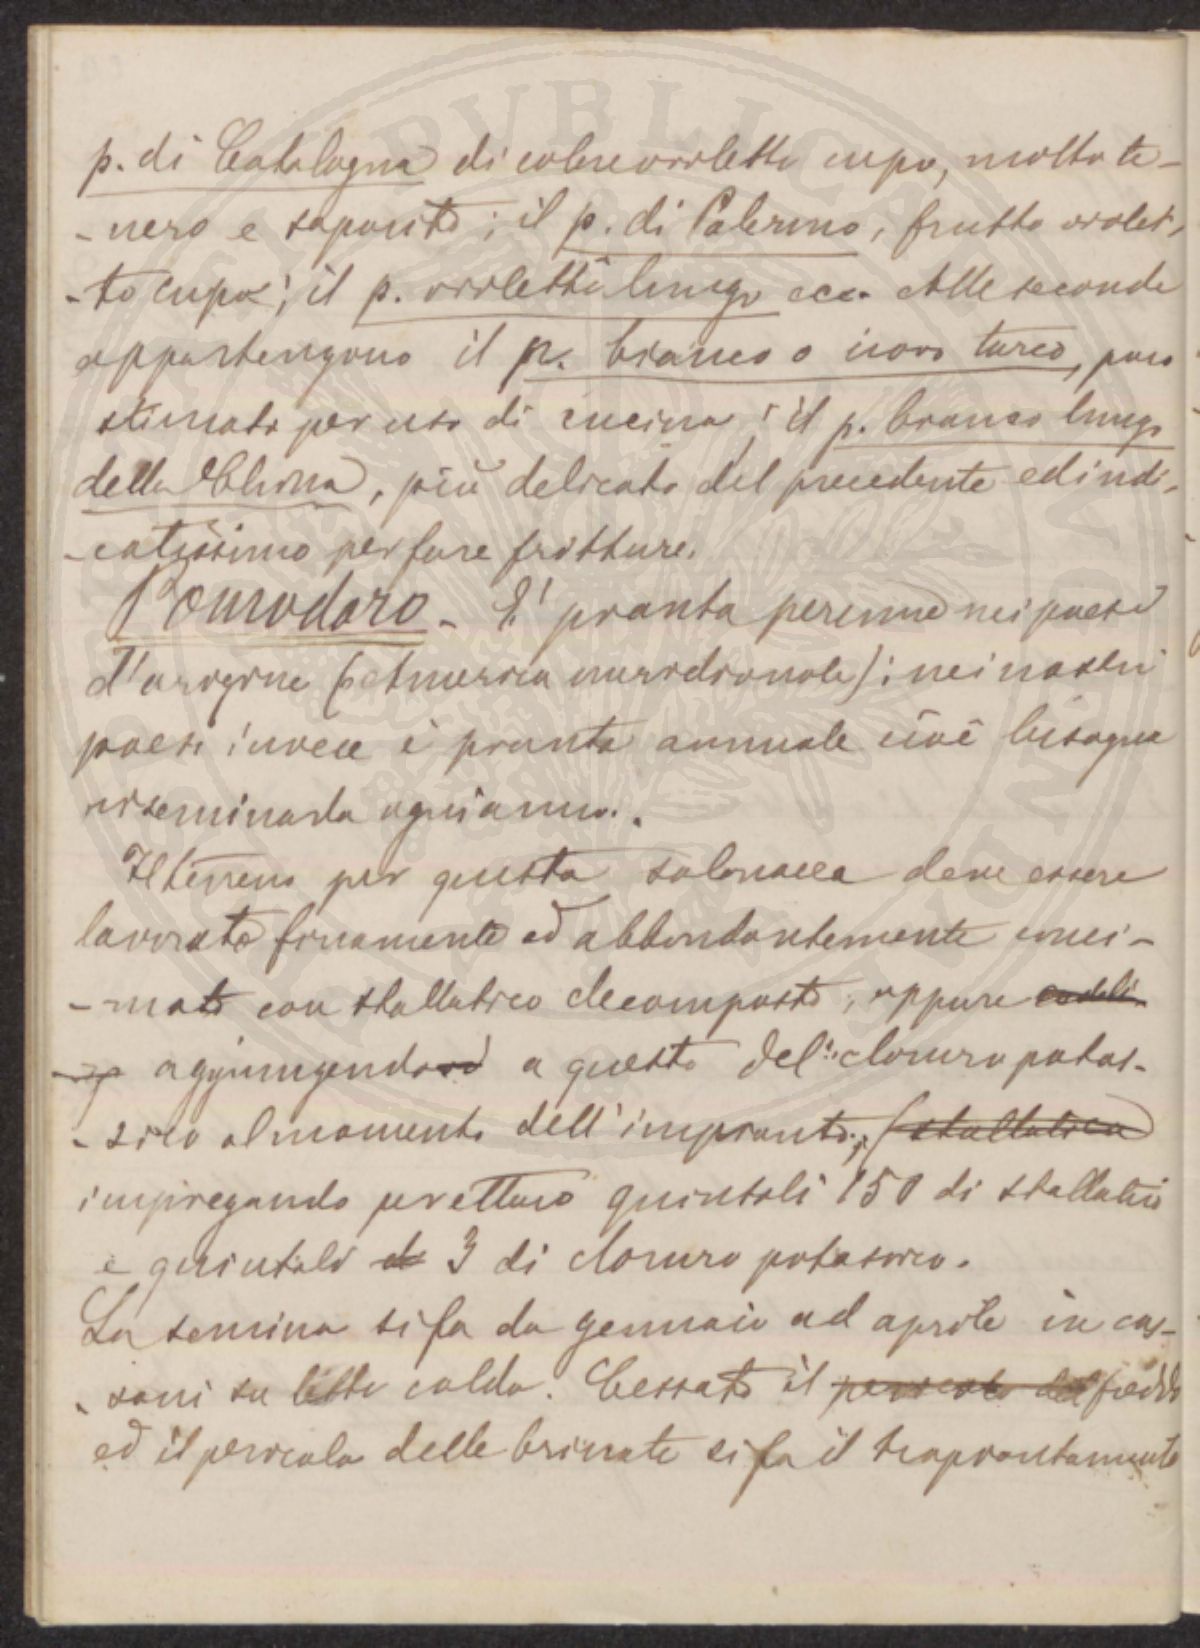 p. di Catalogna di colore violetto cupo, molto te-
-nero e saporito; il p. di Palermo, frutto violet-
-to cupo; il p. violetto lungo ecc. Alle seconde
appartengono il p. bianco o uovo turco, poco
stimato per uso di cucina; il p. bianco lungo
della China, più delicato del precedente ed indi-
-catissimo per fare fritture.
Pomodoro - E' pianta perenne nei paesi
d'origine (America meridionale); nei nostri
paesi invece è pianta annuale cioè bisogna
riseminarla ogni anno.
Il terreno per questa solanacea deve essere
lavorato finamente ed abbondantemente conci-
-mato con stallatico decomposto, oppure
aggiungendo a questo del cloruro potas-
-sico al momento dell'impianto; (stallatico
impiegando per ettaro quintali 150 di stallatico
e quintali di 3 di cloruro potassico.
La semina si fa da gennaio ad aprile in cas-
-soni su letto caldo. Cessato il pericolo del freddo
ed il pericolo delle brinate si fa il trapiantamento
PVBLICA